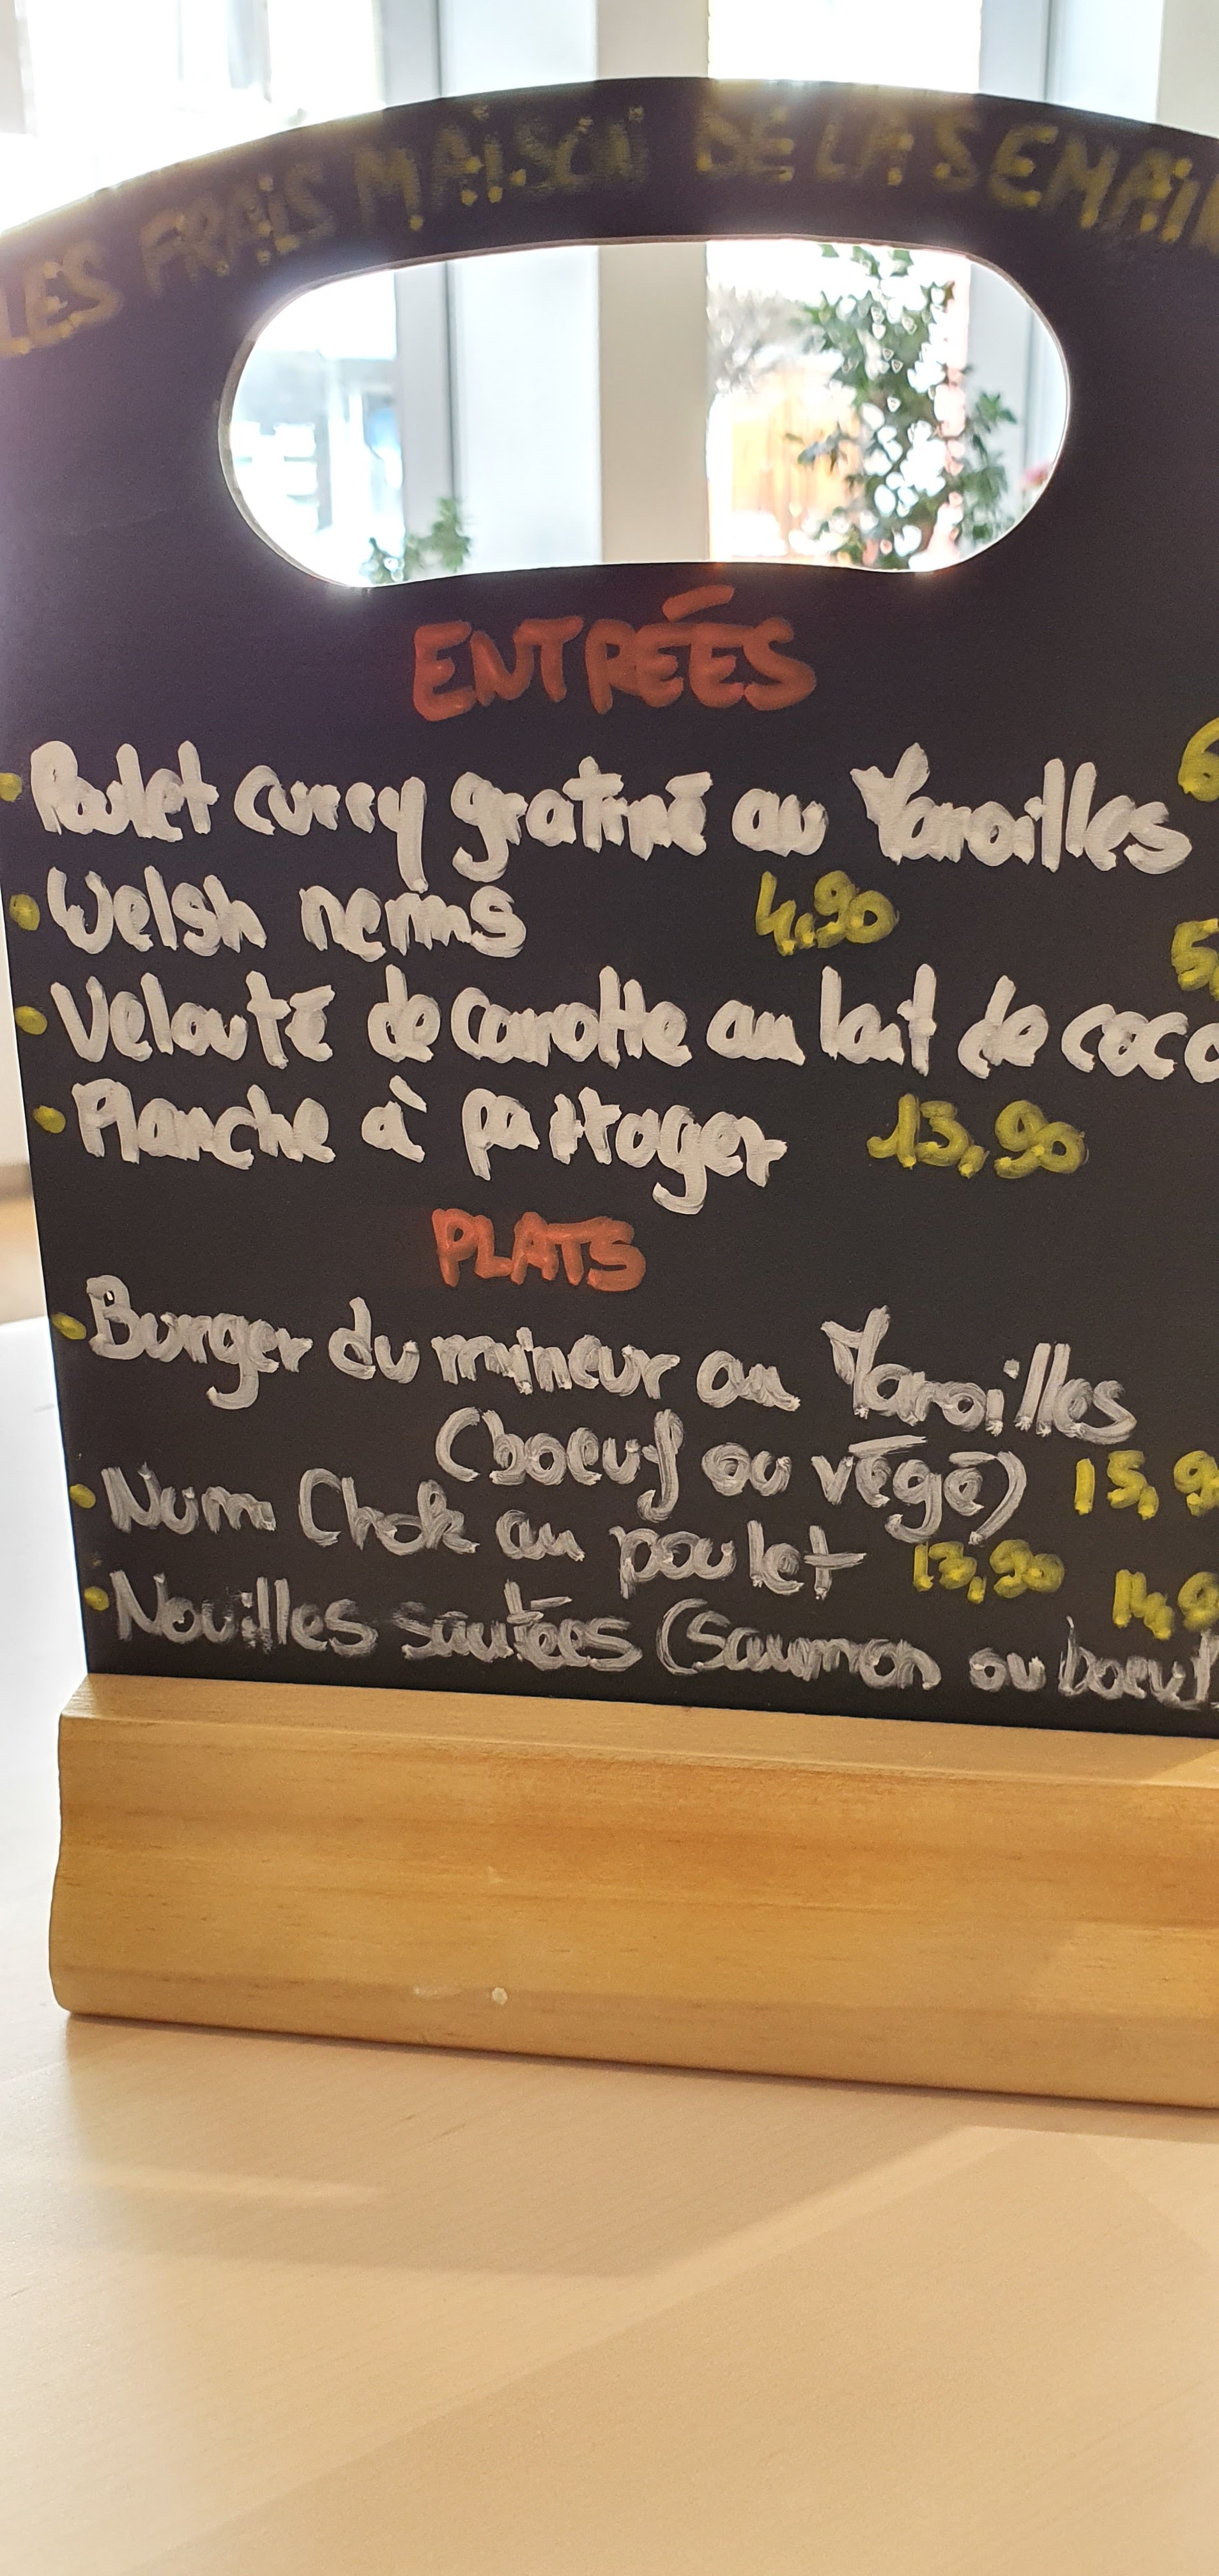 LES FRAIS MAISON DE LA SEMAIN
ENTRÉES
Poulet curry gratiné au Maroilles 6
Welsh nems 4,90
Velouté de carotte au lait de coco 5,
Planche à partager 13,90
PLATS
Burger du mineur au Maroilles
(boeuf ou végé) 15,9
Num Chok au poulet 13,90
Nouilles sautées (saumon ou boeuf 14,9